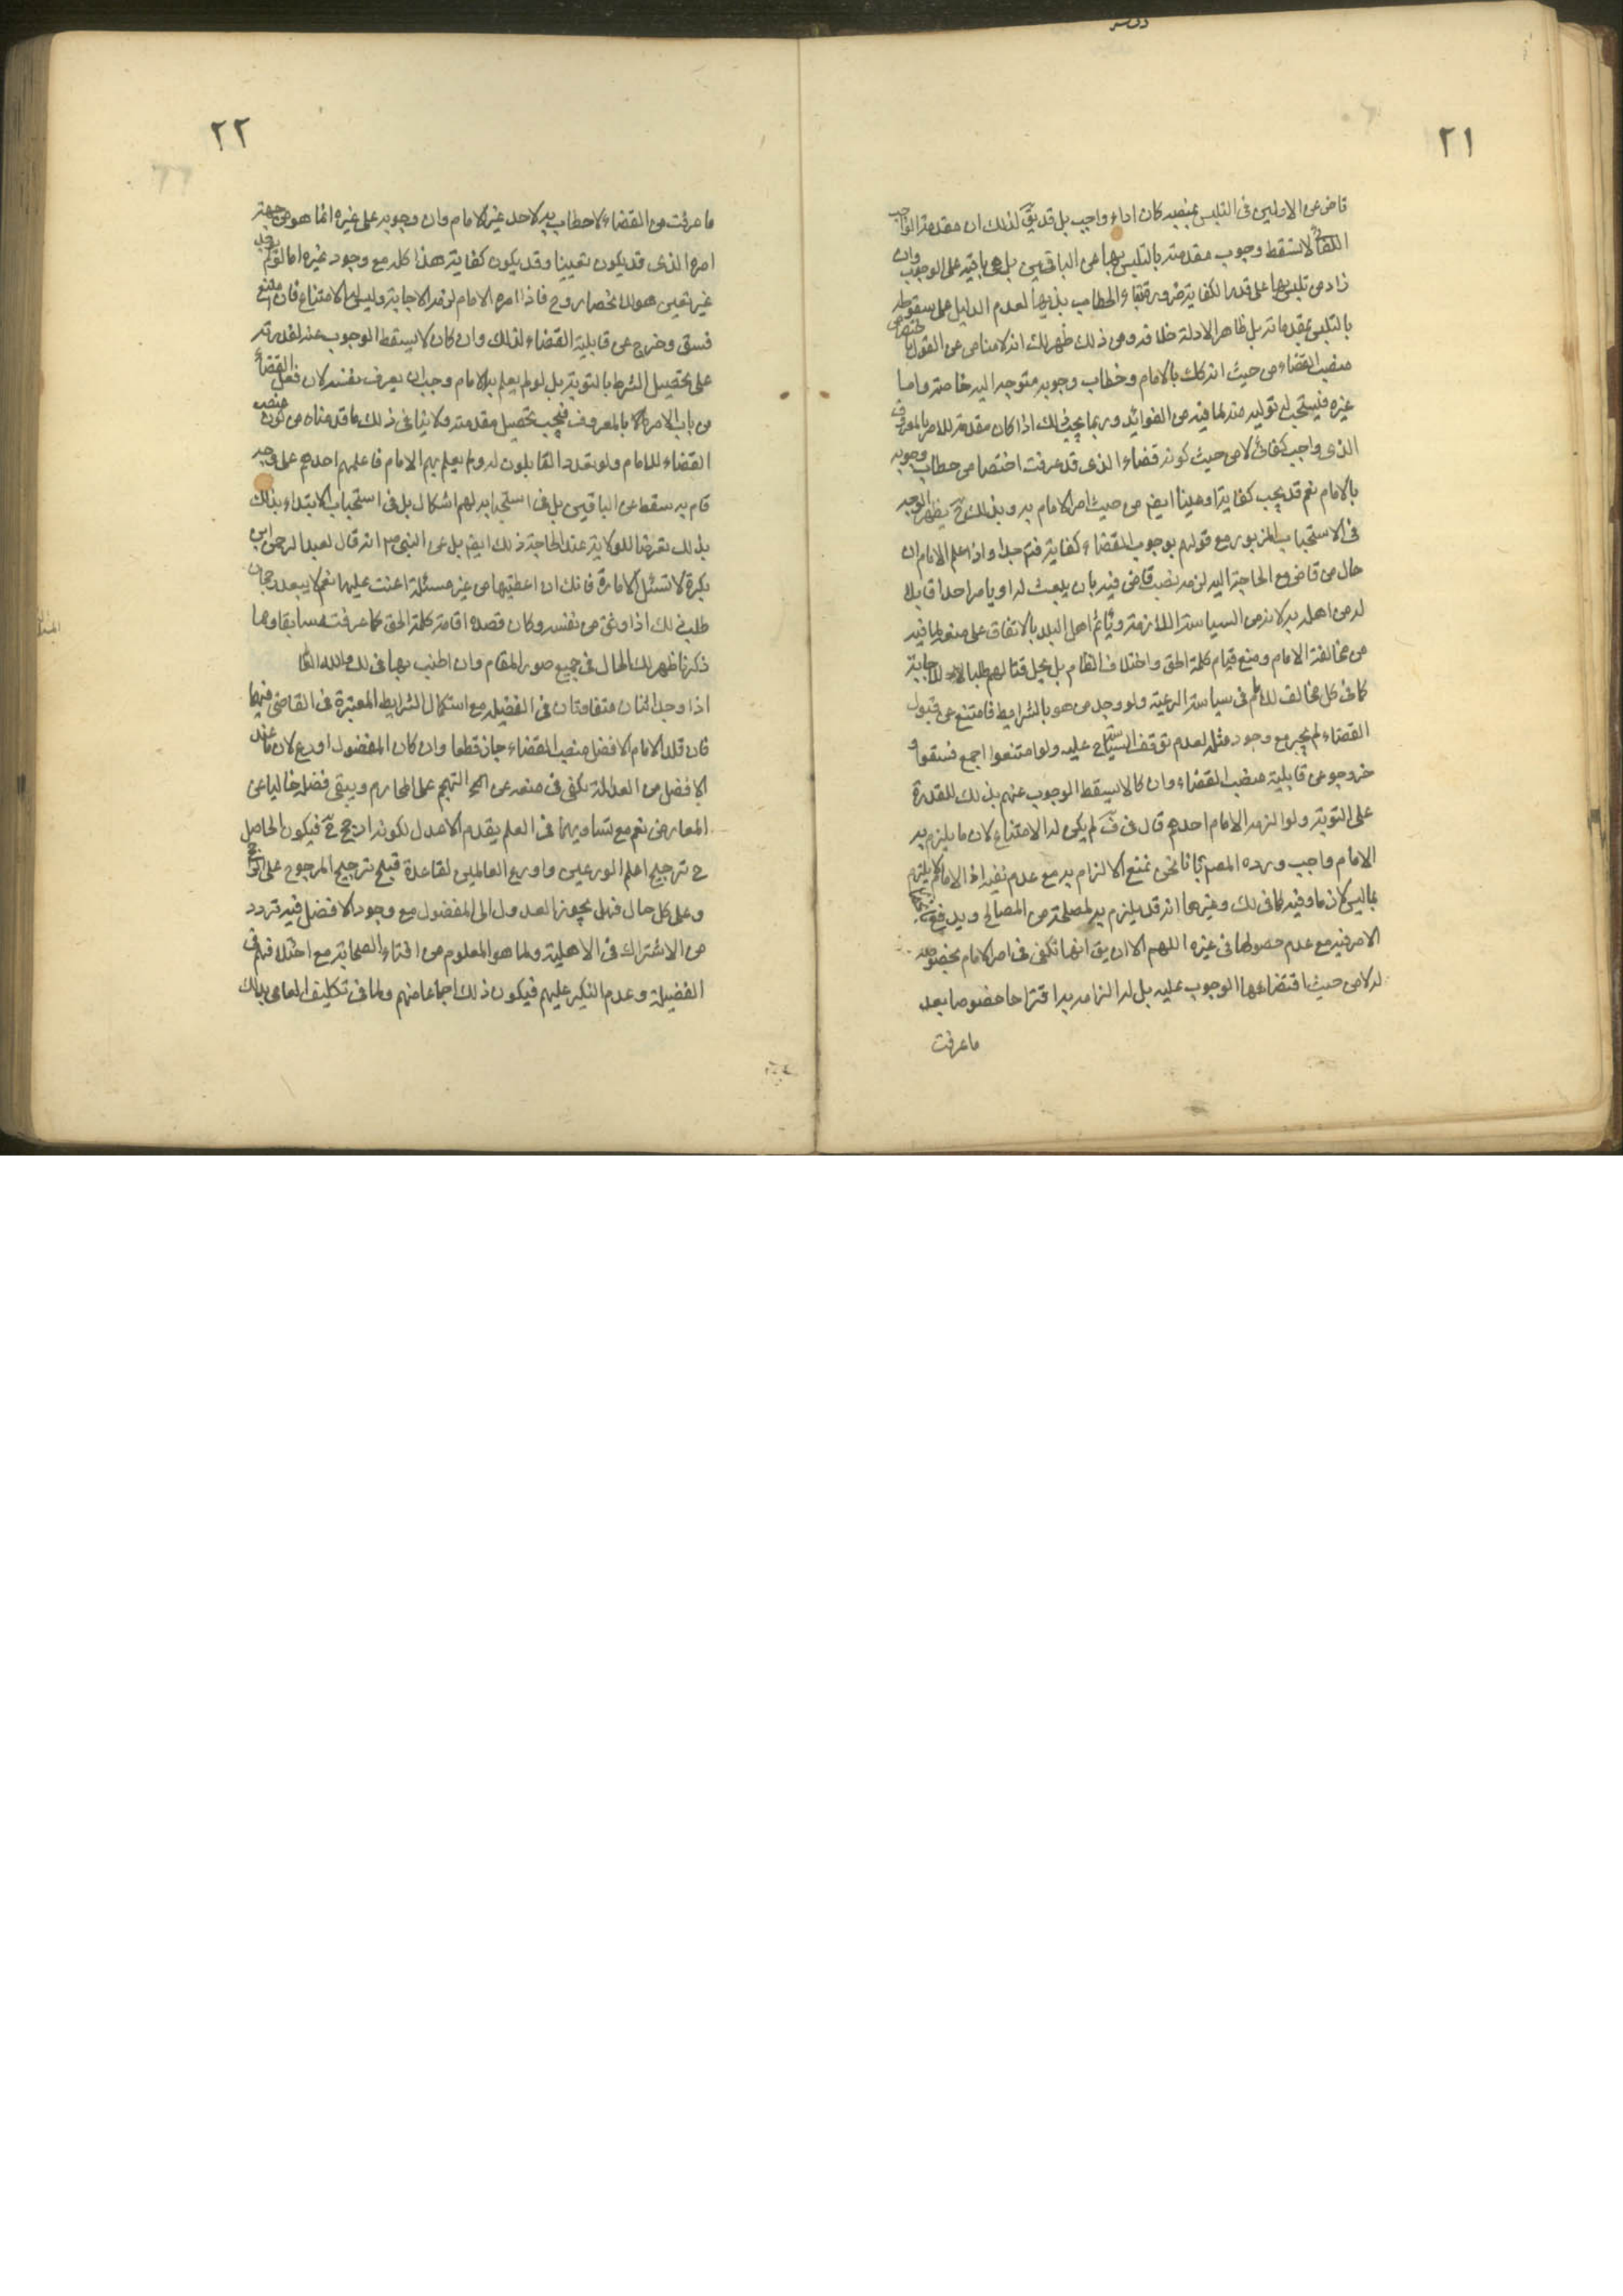 ٢١
قاض عن الاولين فى التلبس بمنصبه كان اداء واجب بل قد يقٓ لذلك ان مقدمة الواجب
الكفائى لا تسقط وجوب مقدمته بالتلبس بها عن الباقين بل هى باقية على الوجوب وان
زاد من تلبس بها على قدر الكفاية ضرورة بقاء الخطاب بذيها لعدم الدليل على سقوطه
بالتلبس بمقدماته بل ظاهر الادلة خلافه ومن ذلك ظهر لك انه لا مناص عن القول باختصاص
منصب القضاء من حيث انه كك بالامام وخطاب وجوبه متوجه اليه خاصة واما
غيره فيستحب له توليه منه لما فيه من الفوائد وربما يجب ذلك اذا كان مقدمة للامر بالمعروف
الذى واجب كفائى لا من حيث كونه قضاء الذى قد عرفت اختصاص خطاب وجوبه
بالامام نعم قد يجب كفاية او عينا ايض من حيث امر الامام به وبذلك يظهر الوجه
فى الاستحباب المزبور مع قولهم بوجوب القضاء كفاية فتم جدا واذا علم الامام ان
حال من قاض مع الحاجة اليه لزمه نصب قاض فيه بان يبعث له او يامر احدا قابلا
له من اهله به لانه من السياسة اللازمة ويأثم اهل البلد بالاتفاق على منعه لما فيه
من مخالفة الامام ومنع قيام كلمة الحق واختلاف النظام بل يحل قتالهم طلبا للاجابة
كما فى كل مخالف للامام فى سياسة الرعية ولو وجد من هو بالشرايط فامتنع عن قبول
القضاء لم يجبر مع وجود مثله لعدم توقف السياسة عليه ولو امتنعوا اجمع فسقوا و
خرجوا عن قابلية منصب القضاء وان كا لا يسقط الوجوب عنهم بذلك للقدرة
على التوبة ولو الزمه الامام احدهم قال فى فٓ لم يكن له الامتناع لان ما يلزم به
الامام واجب ورده المصم بانا نحن نمنع الالزام به مع عدم تعينه اذ الامام لا يلزم
بما ليس لازما وفيه كما فى لك وغيرها انه قد يلزم به لمصلحة من المصالح ويدفع
الامر فيه مع عدم حصولها فى غيره اللهم الا ان يق انها تكفى فى امر الامام بخصوصه
له لا من حيث اقتضائها الوجوب عليه بل له الزامه به اقتراحا خصوصا بعد
ما عرفت
٢٢
ما عرفت من القضاء لا خطاب به لاحد غير الامام وان وجوبه على غيره انما هو من جهة
امره الذى قد يكون تعيينا وقد يكون كفاية هذا كله مع وجود غيره اما لو لم يوجد
غيره تعين هو لانحصاره وح فاذا امره الامام لزمه الاجابة وليس له الامتناع فان امتنع
فسق وخرج عن قابلية القضاء لذلك وان كان لا يسقط الوجوب عنه لقدرته
على تحصيل الشرط بالتوبة بل لو لم يعلم به الامام وجب ان يعرف نفسه لان فعل القضاء
من باب الامر بالمعروف فيجب تحصيل مقدمته ولا ينافى ذلك ما قدمناه من كون منصب
القضاء للامام ولو تعدد القابلون له ولم يعلم بهم الامام فاعلمهم احدهم على وجه
قام به سقط عن الباقين بل فى استحبابه لهم اشكال بل فى استحباب الابتداء بذلك
بذلك تعرضا للولاية عند الحاجة ذلك ايض بل عن النبى ص انه قال لعبد الرحمن ابن
بكرة لا تسئل الامارة فانك ان اعطيتها من غير مسئلة اعنت عليها نعم لا يبعد رجحان
طلب ذلك اذا وثق من نفسه وكان قصده اقامة كلمة الحق كما عرفته سابقا ومما
ذكرنا ظهر لك الحال فى جميع صور المقام وان اطنب بها فى لك والله العا
اذا وجد اثنان متفاوتان فى الفضيله مع استكمال الشرايط المعتبرة فى القاضى فيهما
فان قلد الامام الافضل منصب القضاء جاز قطعا وان كان المفضول اورع لان ما عند
الافضل من العدالة يكفى فى منعه عن التهجم على المحارم ويبقى فضله خاليا عن
المعارض نعم مع تساويهما فى العلم يقدم الاعدل لكونه ارجح حٓ فيكون الحاصل
ح ترجيح اعلم الورعين واورع العالمين لقاعدة قبح ترجيح المرجوح على الراجح
وعلى كل حال فهل يجوز العدول الى المفضول مع وجود الافضل فيه تردد
من الاشتراك فى الاهلية ولما هو المعلوم من افتاء الصحابة مع اختلافهم فى
الفضيلة وعدم النكير عليهم فيكون ذلك اجماعا منهم ولما فى تكليف العامى بذلك